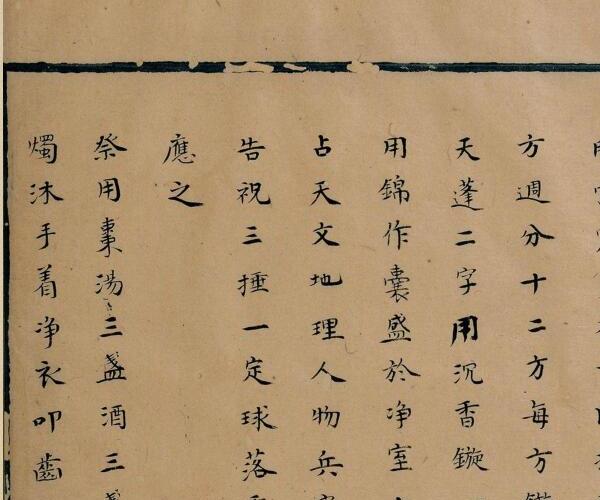 方週分十二方每方
天蓬二字用沉香鏇
用錦作囊盛於净室
占天文地理人物兵
告祝三捶一定球落
應之
祭用棗湯三盞酒三
燭沐手着净衣叩齒